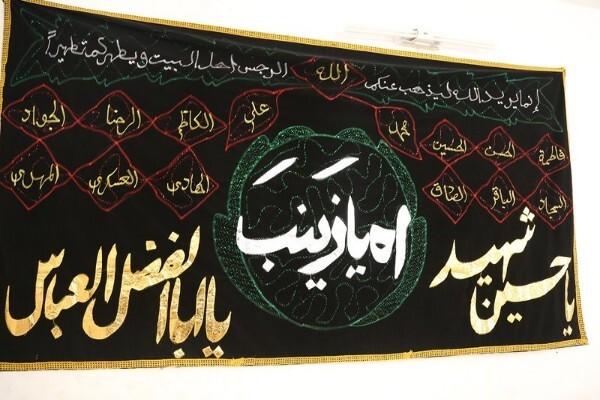 إنما يريد الله ليذهب عنكم الرجس اهل البيت ويطهركم تطهيراً
الله
محمد علي
فاطمة الحسن الحسين الكاظم الرضا الجواد
السجاد الباقر الصادق الهادي العسكري المهدي
يا حسين شهيد
يا زَينَب
يا اباالفضل العباس